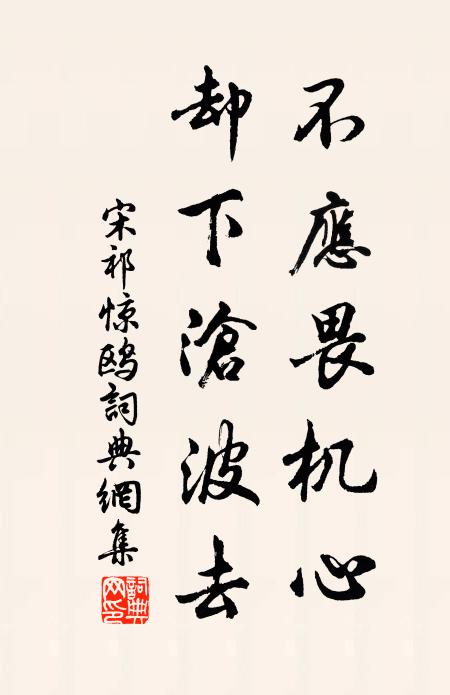 不應畏机心
却下滄波去
宋祁惊鸥詞典網集
詞典网印